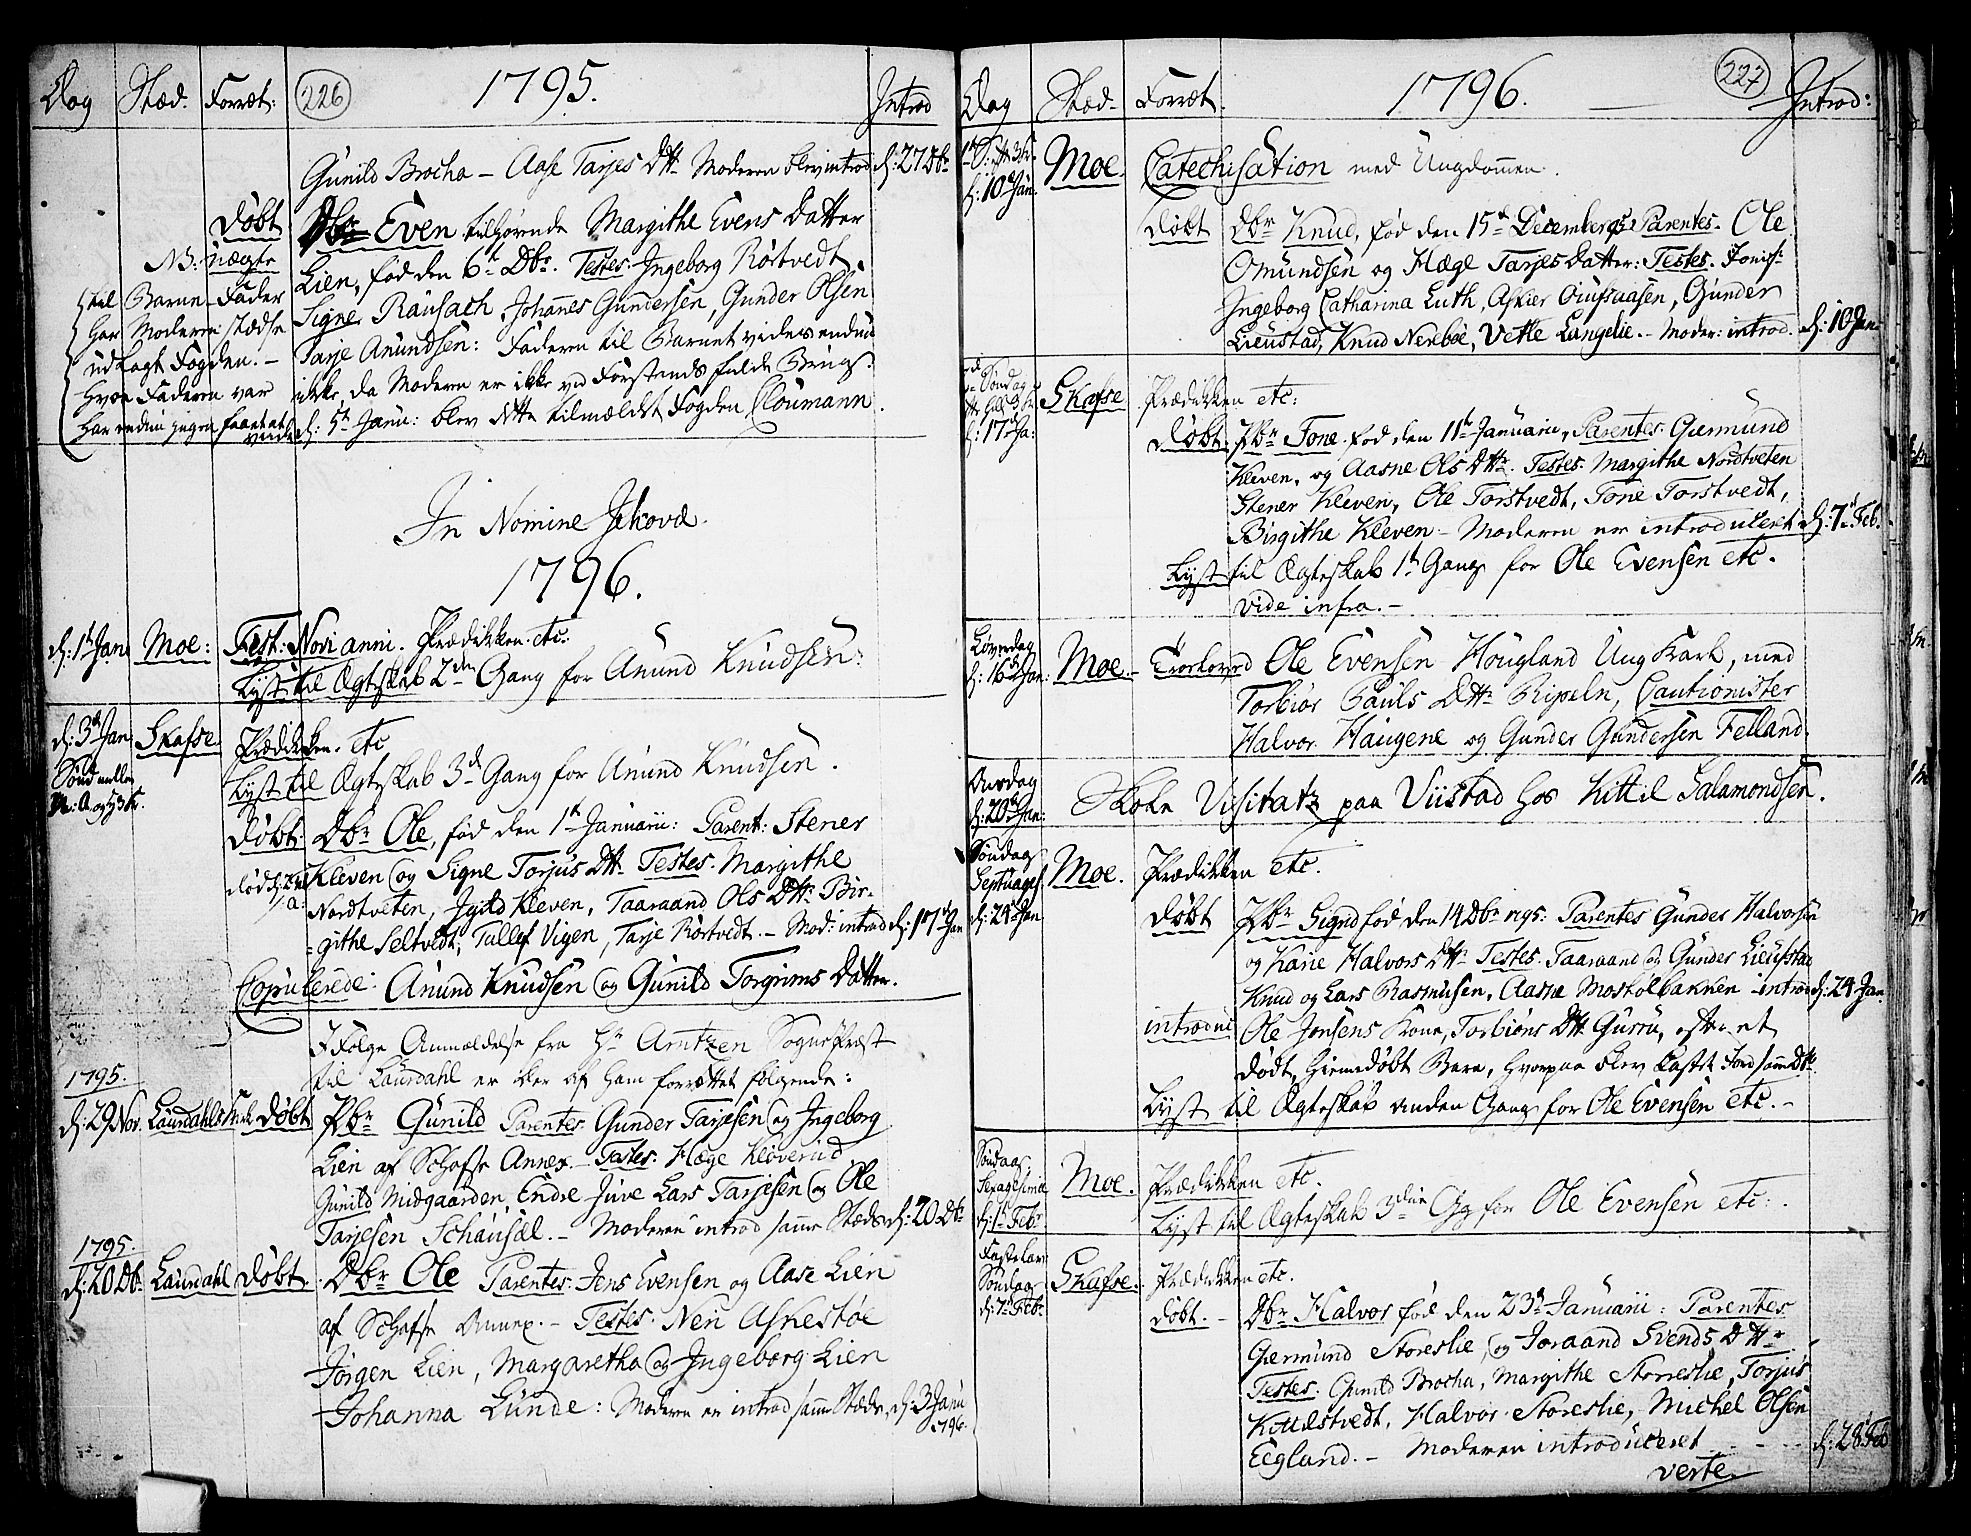 Dag Stæd. Forræt: 226 1795. Introd
Gunild Brocha – Aase Tarjes Dtt. Moderen blev introd d: 27 Dbr
Døbt Dbr Even tilhørende Margithe Evens Datter
Lien, fød den 6t Dbr. Testes: Ingeborg Rørtvedt,
Signe Rausach, Johannes Gundersen, Gunder Olsen
Tarje Amundsen: Faderen til Barnet vides endnu
ikke, da Moderen er ikke ved Forstands fulde Brug:
d: 5t Janu: blev dette tilmældt Fogden Cloumann.
NB: Uægte
til Barne-Fader
har Moderen stædse
udlagt Fogden. –
hvem Faderen var
har endnu ingen faaet at
vide
In Nomine Jehovæ.
1796.
d: 1t Jan Moe: Fest: Novi anni. Prædikken etc:
Lyst til Ægteskab 2den Gang for Anund Knudsen:
d: 3d Jan Skafse Prædikken. etc
Lyst til Ægteskab 3d Gang for Anund Knudsen.
Sønd mellem
N: A og H 3 K.
Døbt: Dbr Ole, fød den 1t Januarii: Parent: Stener
Kleven og Signe Torjus Dtt. Testes. Margithe
Nordtveten, Jgild Kleven, Taaraand Ols Dttr Bir-
githe Seltvedt, Tallef Vigen, Tarje Rørtvedt. – Mod: introd d: 17d Jan
Copulerede: Anund Knudsen og Gunild Torgrims Datter.
I Følge Anmældelse fra Hr Arntzen SognePræst
til Laurdahl er der af ham forrettet følgende:
1795.
d: 29 Nov. Laurdahls Kirke Døbt Pbr Gunild Parentes Gunder Tarjesen og Ingeborg
Lien af Schafse Annex. – Testes: Hæge Kløverud
Gunild Midgaarden, Endre Juve Lars Tarjesen og Ole
Tarjesen Schansæl. – Moderen introd samme Stæds d: 20 Dbr
1795.
d: 20 Dbr Laurdahl Døbt. Dbr Ole Parentes: Jens Evensen og Aase Lien
af Schafse Annex. – Testes: Neri Asnestøe
Jørgen Lien, Margaretha og Ingeborg Lien
Johanna Lunde: Moderen er introd samme Stæds, d: 3 Janu
1796.
Dag Stæd. Forræt. 1796. 227 Introd:
d: 10d Jan: Moe. Catechisation med Ungdommen.
Døbt Dbr Knud, fød den 15d December 95 Parentes. Ole
Omundsen og Hæge Tarjes Datter: Testes.
Ingeborg Catharina Luth, Gunder
Lieustad, Knud Nerebøe, Vetle Langelie. – Moder: introd. d: 10 Jan
Søndag
d: 17d Ja: Skafse Prædikken etc:
Døbt: Pbr Tone fød den 11t Januarii, Parentes. Giermund
Kleven, og Aasne Ols Dttr. Testes. Margithe Nordtveten
Stener Kleven, Ole Torstvedt, Tone Torstvedt,
Birgithe Kleven – Moderen er introduceret d: 7d Feb.
Lyst til Ægteskab 1t Gang for Ole Evensen etc.
vide infra. –
Løverdag
d: 16d Jan: Moe. Trolovod Ole Evensen Hougland Ung Karl, med
Torbiør Pauls Dttr Ripeln, Cautionister
Halvor Haugene og Gunder Gundersen Felland.
Onsdag
d: 20d Jan: Skole Visitatz paa Viistad hos Kittil Salamondsen.
Søndag
Septuages.
d: 24d Jan Moe. Prædikken etc.
Døbt Pbr Signe fød den 14 Dbr 1795: Parentes Gunder Halvorsen
og Karie Halvors Dtt. Testes. Taaraand og Gunder Lieustad
Knud og Lars Rasmusen, Aasne Moskolbaknen – introd d: 24 Jan
introduc Ole Jonsens Kone, Torbiøns Dtt. Gurru, efter et
dødt, hiemedøbt Barn, hvorpaa blev kastet Jord samme Dtto
Lyst til Ægteskab anden Gang for Ole Evensen etc. –
Søndag
Sexagesima
d: 1t Febr Moe. Prædikken etc.
Lyst til Ægteskab 3die Gg for Ole Evensen etc:.
Fastelavn
Søndag
d: 7d Febr. Skafse. Prædikken etc.
Døbt. – Dbr Halvor fød den 23d Januarii: Parentes
Giermund Storeslie, og Joraand Svends Dttr
Testes. Gunild Brocha, Margithe Storreslie, Torjus
Halvor Storeslie, Michel Olsen
Eegland. – Moderen introduceret – – – d: 28d Feb
verte